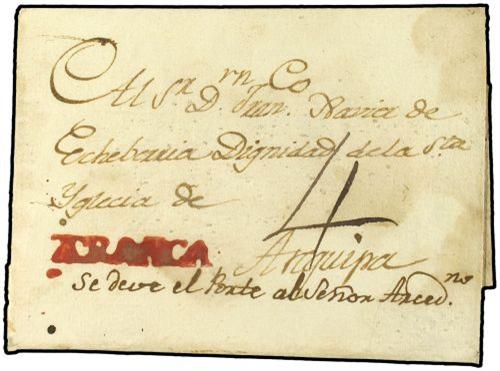 Al Sr. Dn. Fran.co Xavier de
Echeberria Dignidad de la Sta.
Yglecia de
4
Arequipa
Se deve el Porte al Señor Arced.no